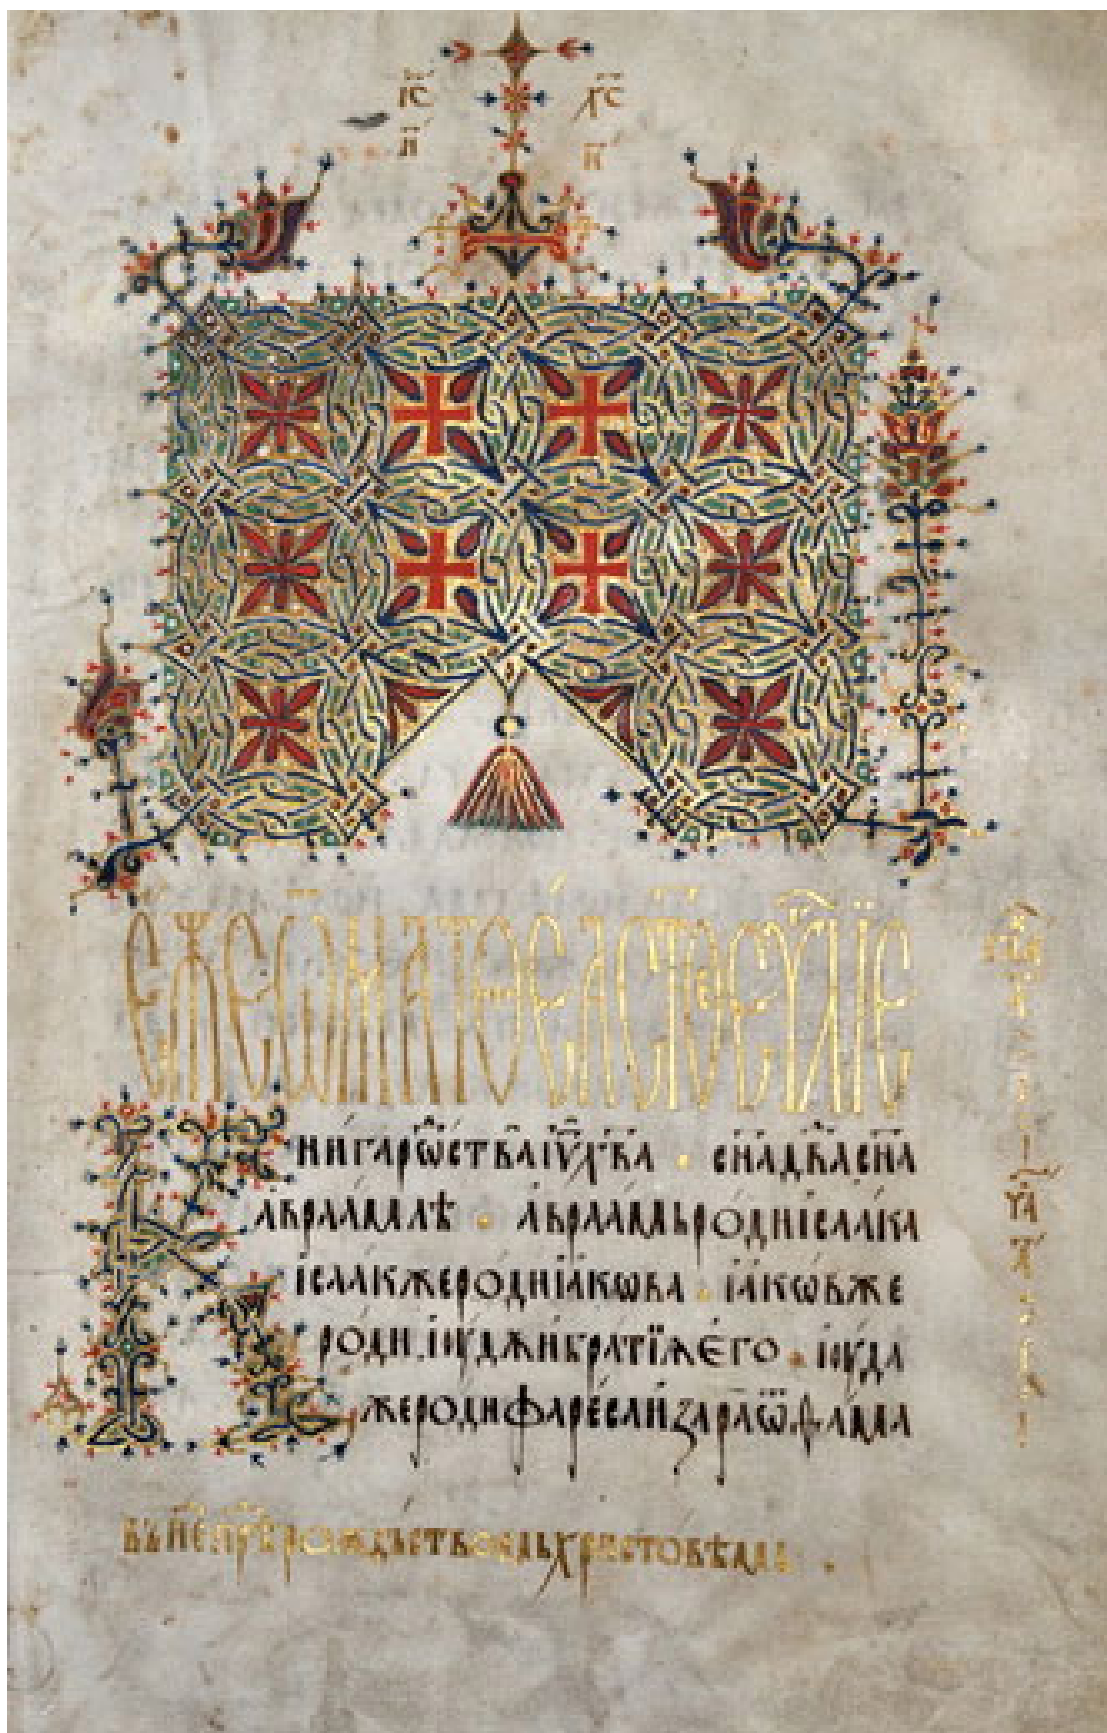 І҃С Х҃С
Н҃ К҃
Є҆ЖЕ Ѿ МАТѲЕ́А С҃ТОЕ ЕѴ҃ГЛЇЕ
КНИ́ГА РѠ҃СТВА І҆Ѵ҃ Х҃ВА · С҃НА Д҃ВА С҃НА
А҆ВРАА́МЛѢ · А҆ВРАА́МЬ РОДИ І҆САА́КА
І҆СААК ЖЕ РОДИ ІА҆́КѠВА · ІА҆́КѠВ ЖЕ
РО́ДИ · І҆ОУ́ДѪ И҆ БРА́ТЇѪ Є҆ГО · І҆ОУДА
ЖЕ РОДИ ФАРЕ́СА И҆ ЗА́РА Ѿ ФА́МА
ВЪ НЕ҃ ПРѢ҃ РОЖДЬСТВОМЬ ХРИСТОВѢМЬ ·